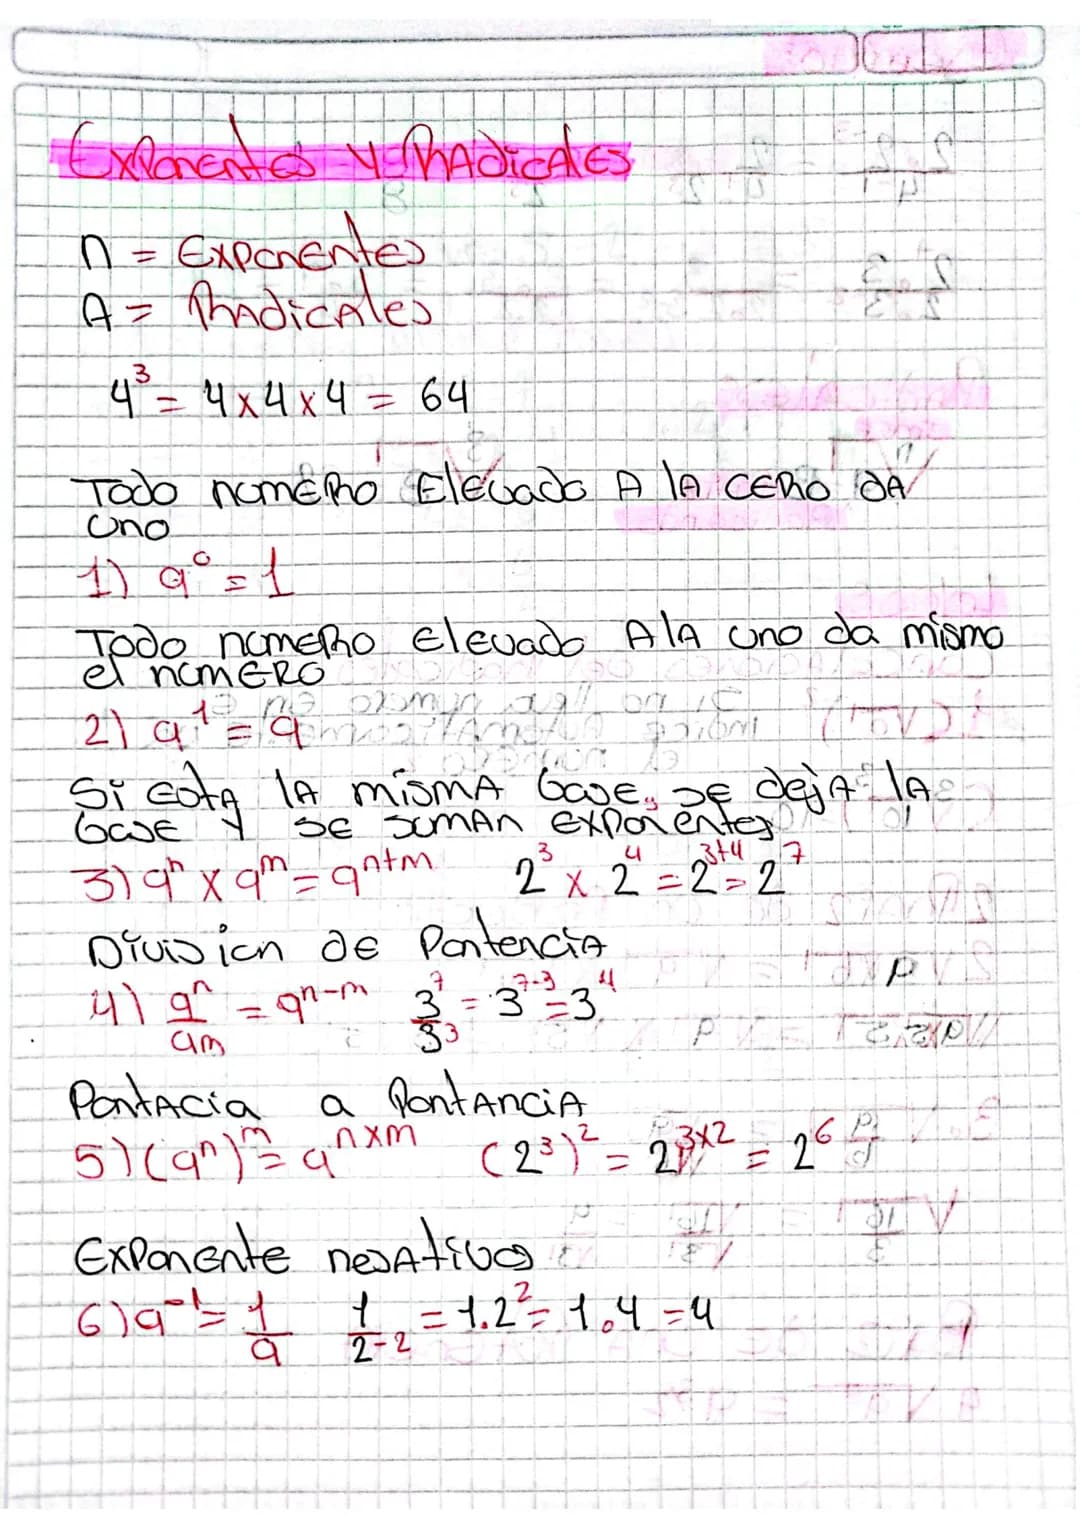 Exponentes y Radicales
n = Exponentes
A = Radicales
4³ = 4 x 4 x 4 = 64
Todo numero Elevado A lA cero dA
uno
1) a⁰ = 1
Todo numero elevado A lA uno da mismo
el numero
2) a¹ = a
Si esta lA misma base, se dejA lA
base y se suman exponentes
3) aⁿ x aᵐ = aⁿ⁺ᵐ 2³ x 2⁴ = 2³⁺⁴ = 2⁷
Division de Pontencia
4) aⁿ/am = aⁿ⁻ᵐ 3⁷/3³ = 3⁷⁻³ = 3⁴
Pontacia a Pontancia
5) (aⁿ)ᵐ = aⁿˣᵐ (2³)² = 2³ˣ² = 2⁶
Exponente negativo
6) a⁻¹ = 1/a 1/2-2 = 1.2² = 1.4 = 4